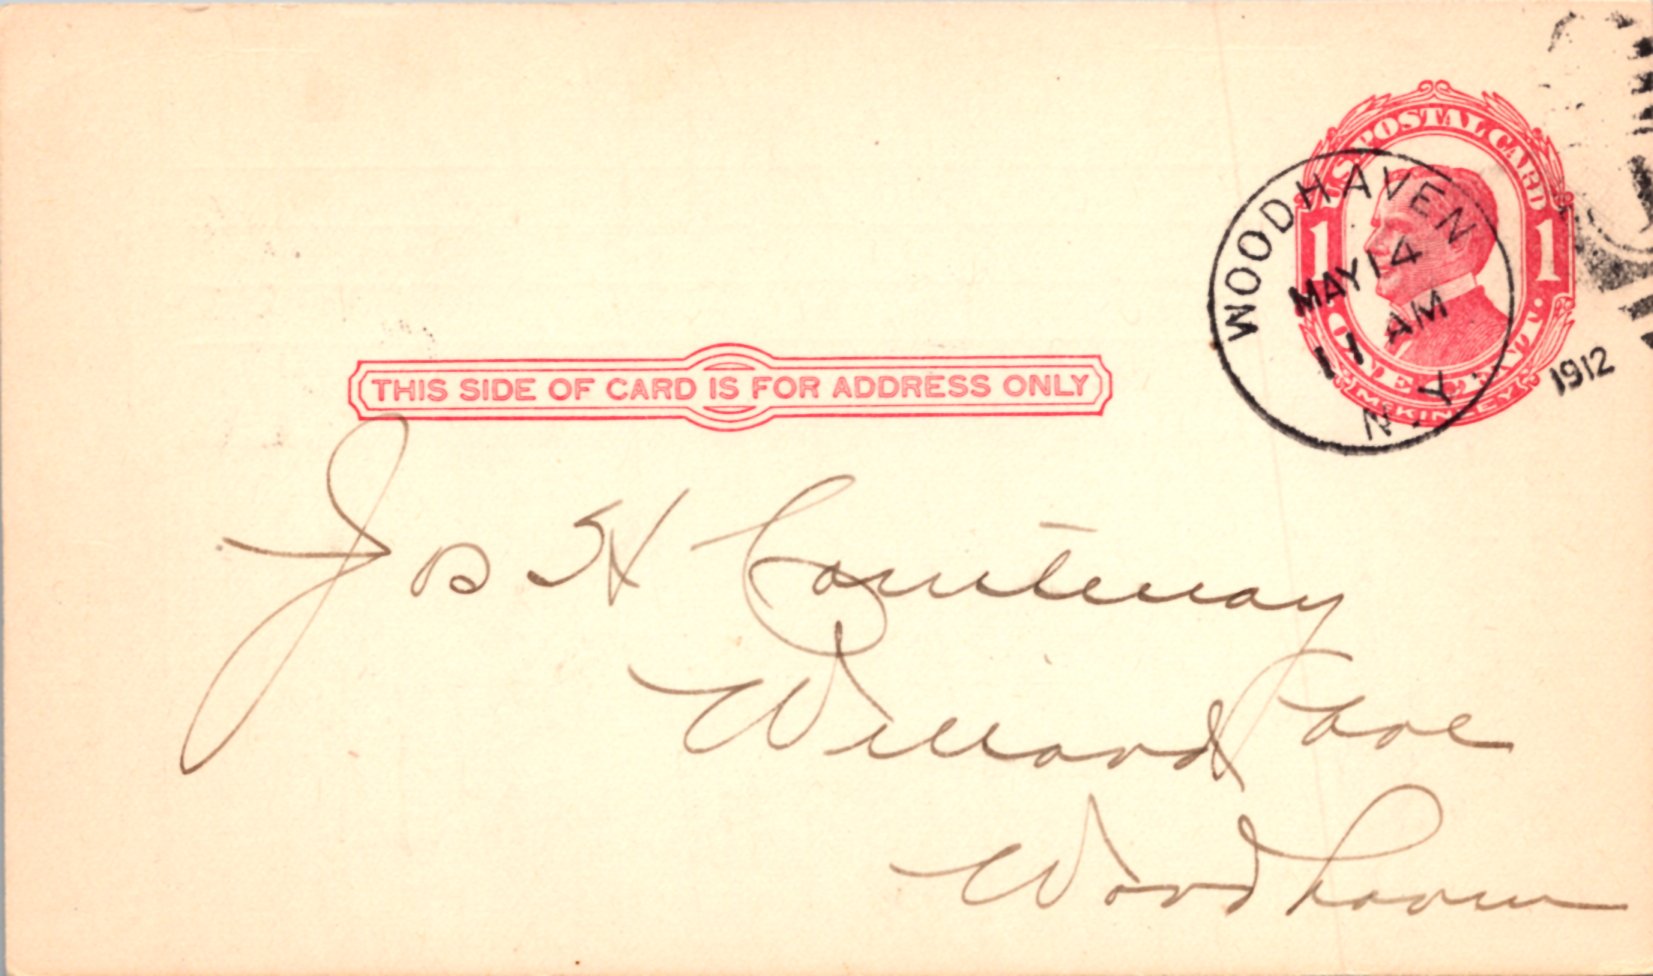 U.S. POSTAL CARD
1 1
ONE CENT.
McKINLEY
WOODHAVEN
MAY 14
11 AM
N. Y.
1912
THIS SIDE OF CARD IS FOR ADDRESS ONLY
Jos H Courtenay
Willard Ave
Woodhaven